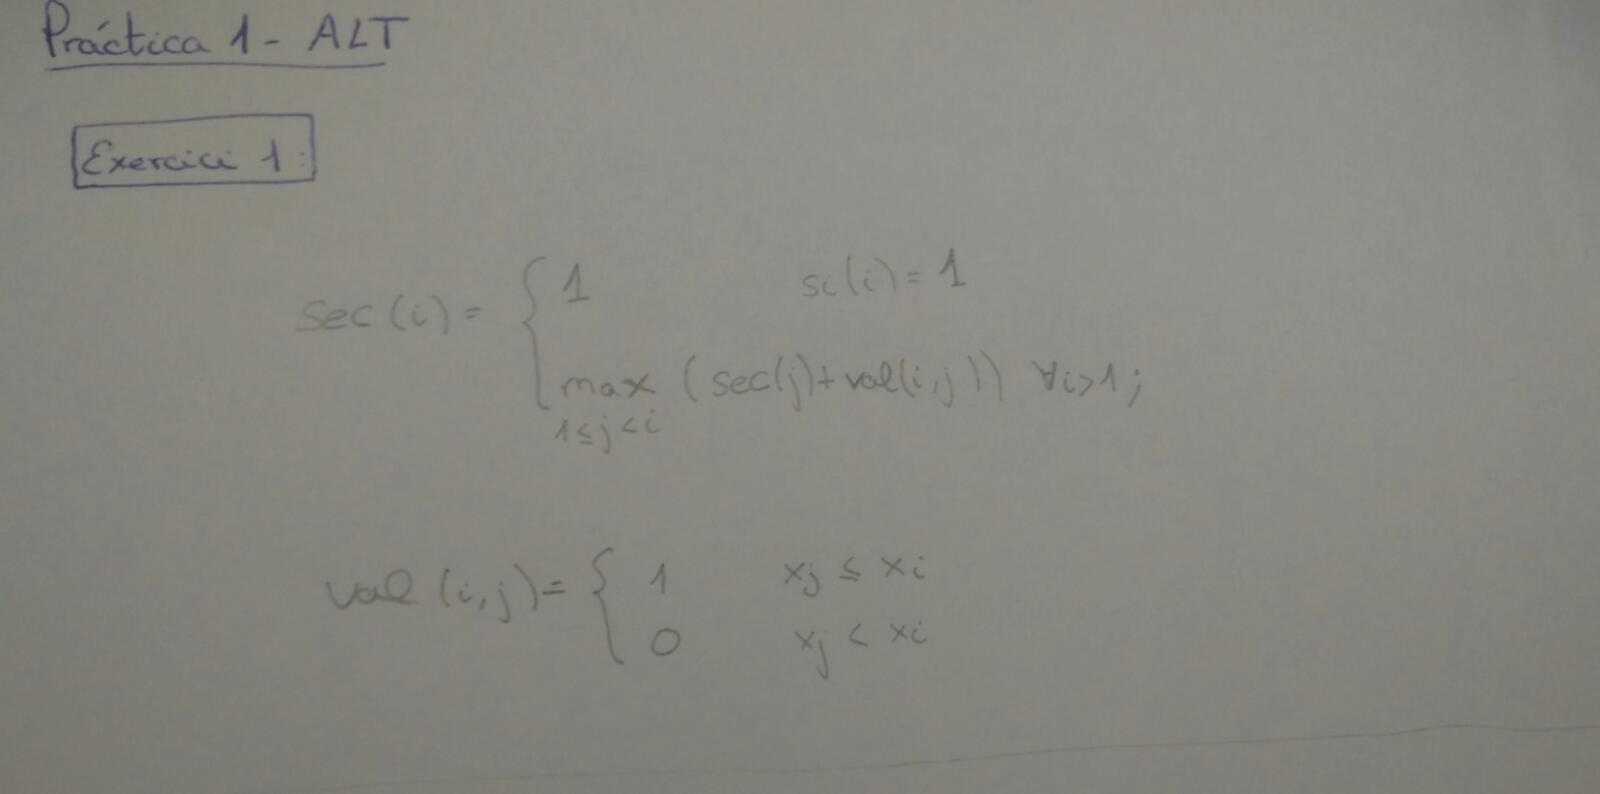 Práctica 1 - ALT
Exercici 1:
sec(i) = { 1 si(i) = 1
max (sec(j) + val(i,j)) ∀i>1;
1≤j<i
val(i,j) = { 1 xj ≤ xi
0 xj < xi